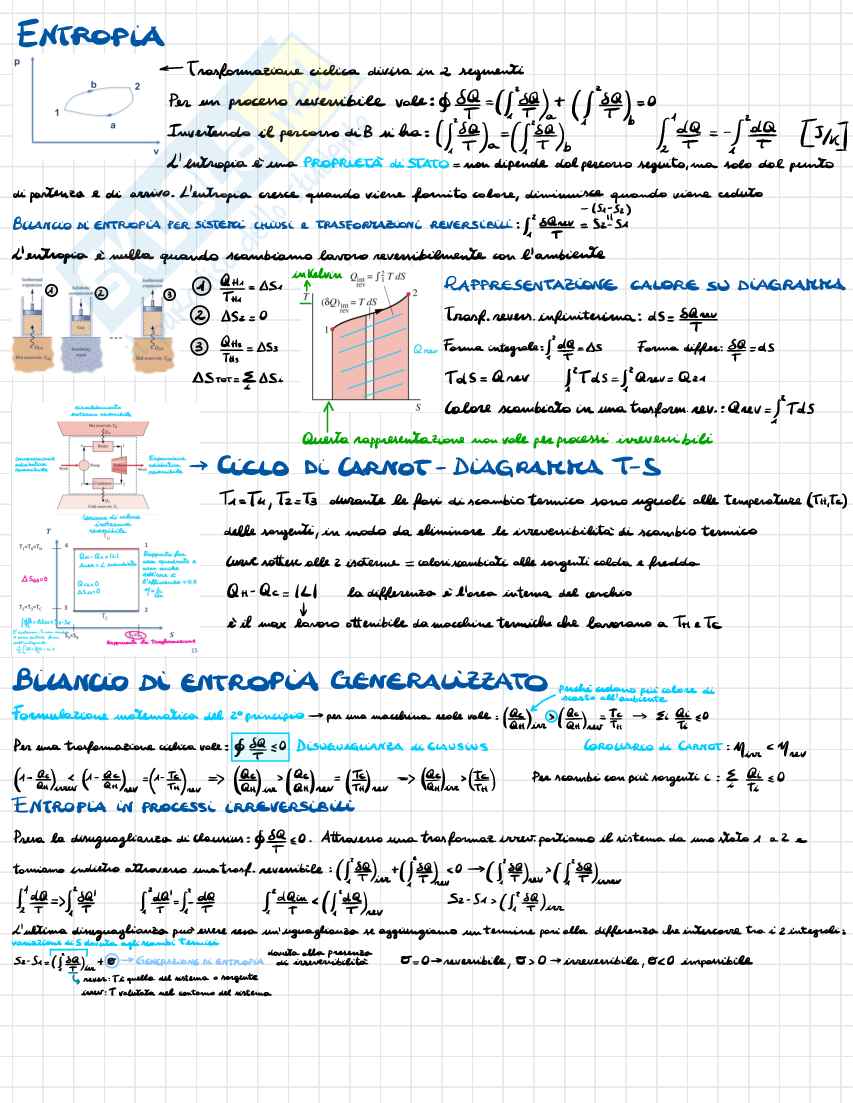 ENTROPIA
p
b
2
1
a
v
← Trasformazione ciclica divisa in 2 segmenti
Per un processo reversibile vale: ∮ δQ/T = (∫₁² δQ/T)a + (∫₁² δQ/T)b = 0
Invertendo il percorso di B si ha: (∫₁² δQ/T)a = (∫₁² δQ/T)b ∫₂¹ dQ/T = -∫₁² dQ/T [J/K]
L'entropia è una PROPRIETÀ di STATO = non dipende dal percorso seguito, ma solo dal punto
di partenza e di arrivo. L'entropia cresce quando viene fornito calore, diminuisce quando viene ceduto
-(S1-S2)
BILANCIO DI ENTROPIA PER SISTEMI CHIUSI E TRASFORMAZIONI REVERSIBILI: ∫₁² δQrev/T = S2-S1
L'entropia è nulla quando scambiamo lavoro reversibilmente con l'ambiente
1
2
3
① QH1/TH1 = ΔS1
② ΔS2 = 0
③ QH3/TH3 = ΔS3
ΔSTOT = Σi ΔSi
in Kelvin
T
Q int rev = ∫₁² T dS
(δQ) int rev = T dS
1
2
Q rev
S
Questa rappresentazione non vale per processi irreversibili
RAPPRESENTAZIONE CALORE SU DIAGRAMMA
Trasf. revers. infinitesima: dS = δQrev/T
Forma integrale: ∫₁² dQ/T = ΔS Forma differ: δQ/T = dS
TdS = Qrev ∫₁² TdS = ∫₁² Qrev = Q21
Calore scambiato in una trasform rev.: Qrev = ∫₁² TdS
Espansione adiabatica reversibile
→ CICLO DI CARNOT - DIAGRAMMA T-S
T1=T4, T2=T3 durante le fasi di scambio termico sono uguali alle temperature (TH,TC)
delle sorgenti, in modo da eliminare le irreversibilità di scambio termico
curve sottese alle 2 isoterme = calori scambiati alle sorgenti calda e fredda
QH-QC = |L| la differenza è l'area interna del cerchio
↓
è il max lavoro ottenibile da macchine termiche che lavorano a TH e TC
T
4
1
QH-QC=|L|
3
2
S
13
BILANCIO DI ENTROPIA GENERALIZZATO
perché cedono più calore di scarto all'ambiente
Formulazione matematica del 2° principio → per una macchina reale vale: (QC/QH)irr > (QC/QH)rev = TC/TH → Σi Qi/Ti ≤ 0
Per una trasformazione ciclica vale: ∮ δQ/T ≤ 0 DISUGUAGLIANZA DI CLAUSIUS COROLLARIO DI CARNOT: ηirr < ηrev
(1-QC/QH)irrev < (1-QC/QH)rev = (1-TC/TH)rev => (QC/QH)irr > (QC/QH)rev = (TC/TH)rev => (QC/QH)irr > (TC/TH) Per scambi con più sorgenti i: Σi Qi/Ti ≤ 0
ENTROPIA IN PROCESSI IRREVERSIBILI
Presa la disuguaglianza di Clausius: ∮ δQ/T ≤ 0. Attraverso una trasformaz irrev. portiamo il sistema da uno stato 1 a 2 e
torniamo indietro attraverso una trasf. reversibile: (∫₁² δQ/T)irr + (∫₂¹ δQ/T)rev < 0 → (∫₁² δQ/T)rev > (∫₁² δQ/T)irrev
∫₂¹ dQ/T => ∫₁² δQ'/T ∫₁² dQ'/T = ∫₁² -dQ/T ∫₁² dQirr/T < (∫₁² dQ/T)rev S2-S1 > (∫₁² δQ/T)irr
L'ultima disuguaglianza può essere resa un'uguaglianza se aggiungiamo un termine pari alla differenza che intercorre tra i 2 integrali:
variazione di S dovuta agli scambi termici
S2-S1 = (∫₁² δQ/T)irr + σ → GENERAZIONE DI ENTROPIA dovuta alla presenza di irreversibilità σ=0→reversibile, σ>0→irreversibile, σ<0 impossibile
rever: T è quella del sistema o sorgente
irrev: T valutata nel contorno del sistema